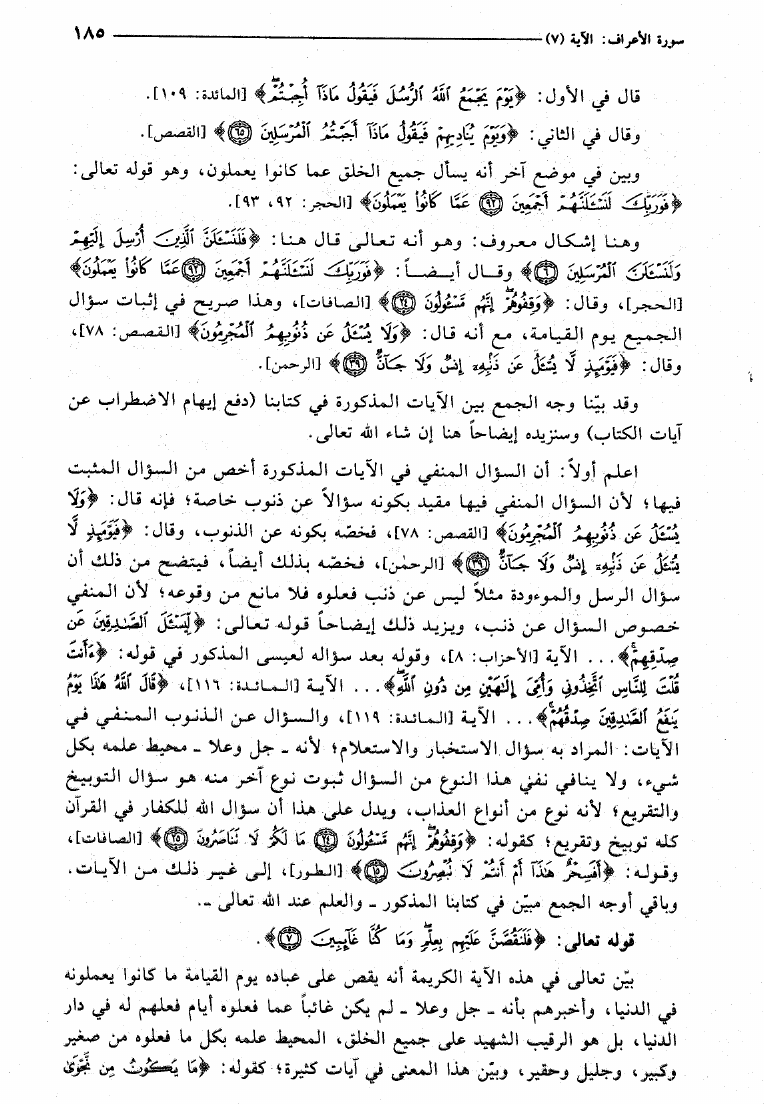 سورة الأعراف: الآية (٧) ١٨٥
قال في الأول: ﴿يَوْمَ يَجْمَعُ اللَّهُ الرُّسُلَ فَيَقُولُ مَاذَا أُجِبْتُمْ﴾ [المائدة: ١٠٩].
وقال في الثاني: ﴿وَيَوْمَ يُنَادِيهِمْ فَيَقُولُ مَاذَا أَجَبْتُمُ الْمُرْسَلِينَ ﴿٦٥﴾﴾ [القصص].
وبين في موضع آخر أنه يسأل جميع الخلق عما كانوا يعملون، وهو قوله تعالى:
﴿فَوَرَبِّكَ لَنَسْـَٔلَنَّهُمْ أَجْمَعِينَ ﴿٩٢﴾ عَمَّا كَانُوا يَعْمَلُونَ﴾ [الحجر: ٩٢، ٩٣].
وهنا إشكال معروف: وهو أنه تعالى قال هنا: ﴿فَلَنَسْـَٔلَنَّ الَّذِينَ أُرْسِلَ إِلَيْهِمْ
وَلَنَسْـَٔلَنَّ الْمُرْسَلِينَ ﴿٦﴾﴾ وقال أيضاً: ﴿فَوَرَبِّكَ لَنَسْـَٔلَنَّهُمْ أَجْمَعِينَ ﴿٩٢﴾ عَمَّا كَانُوا يَعْمَلُونَ﴾
[الحجر]، وقال: ﴿وَقِفُوهُمْ إِنَّهُم مَّسْـُٔولُونَ ﴿٢٤﴾﴾ [الصافات]، وهذا صريح في إثبات سؤال
الجميع يوم القيامة، مع أنه قال: ﴿وَلَا يُسْـَٔلُ عَن ذُنُوبِهِمُ الْمُجْرِمُونَ﴾ [القصص: ٧٨]،
وقال: ﴿فَيَوْمَئِذٍ لَّا يُسْـَٔلُ عَن ذَنبِهِ إِنسٌ وَلَا جَانٌّ ﴿٣٩﴾﴾ [الرحمن].
وقد بيّنا وجه الجمع بين الآيات المذكورة في كتابنا (دفع إيهام الاضطراب عن
آيات الكتاب) وسنزيده إيضاحاً هنا إن شاء الله تعالى.
اعلم أولاً: أن السؤال المنفي في الآيات المذكورة أخص من السؤال المثبت
فيها؛ لأن السؤال المنفي فيها مقيد بكونه سؤالاً عن ذنوب خاصة؛ فإنه قال: ﴿وَلَا
يُسْـَٔلُ عَن ذُنُوبِهِمُ الْمُجْرِمُونَ﴾ [القصص: ٧٨]، فخصّه بكونه عن الذنوب، وقال: ﴿فَيَوْمَئِذٍ لَّا
يُسْـَٔلُ عَن ذَنبِهِ إِنسٌ وَلَا جَانٌّ ﴿٣٩﴾﴾ [الرحمن]، فخصّه بذلك أيضاً، فيتضح من ذلك أن
سؤال الرسل والموءودة مثلاً ليس عن ذنب فعلوه فلا مانع من وقوعه؛ لأن المنفي
خصوص السؤال عن ذنب، ويزيد ذلك إيضاحاً قوله تعالى: ﴿لِّيَسْـَٔلَ الصَّادِقِينَ عَن
صِدْقِهِمْ﴾... الآية [الأحزاب: ٨]، وقوله بعد سؤاله لعيسى المذكور في قوله: ﴿ءَأَنتَ
قُلْتَ لِلنَّاسِ اتَّخِذُونِي وَأُمِّيَ إِلَٰهَيْنِ مِن دُونِ اللَّهِ﴾... الآية [المائدة: ١١٦]، ﴿قَالَ اللَّهُ هَٰذَا يَوْمُ
يَنفَعُ الصَّادِقِينَ صِدْقُهُمْ﴾... الآية [المائدة: ١١٩]، والسؤال عن الذنوب المنفي في
الآيات: المراد به سؤال الاستخبار والاستعلام؛ لأنه - جل وعلا - محيط علمه بكل
شيء، ولا ينافي نفي هذا النوع من السؤال ثبوت نوع آخر منه هو سؤال التوبيخ
والتقريع؛ لأنه نوع من أنواع العذاب، ويدل على هذا أن سؤال الله للكفار في القرآن
كله توبيخ وتقريع؛ كقوله: ﴿وَقِفُوهُمْ إِنَّهُم مَّسْـُٔولُونَ ﴿٢٤﴾ مَا لَكُمْ لَا تَنَاصَرُونَ ﴿٢٥﴾﴾ [الصافات]،
وقوله: ﴿أَفَسِحْرٌ هَٰذَا أَمْ أَنتُمْ لَا تُبْصِرُونَ ﴿١٥﴾﴾ [الطور]، إلى غير ذلك من الآيات.
وباقي أوجه الجمع مبيّن في كتابنا المذكور - والعلم عند الله تعالى -.
قوله تعالى: ﴿فَلَنَقُصَّنَّ عَلَيْهِم بِعِلْمٍ وَمَا كُنَّا غَائِبِينَ ﴿٧﴾﴾.
بيّن تعالى في هذه الآية الكريمة أنه يقص على عباده يوم القيامة ما كانوا يعملونه
في الدنيا، وأخبرهم بأنه - جل وعلا - لم يكن غائباً عما فعلوه أيام فعلهم له في دار
الدنيا، بل هو الرقيب الشهيد على جميع الخلق، المحيط علمه بكل ما فعلوه من صغير
وكبير، وجليل وحقير، وبيّن هذا المعنى في آيات كثيرة؛ كقوله: ﴿مَا يَكُونُ مِن نَّجْوَىٰ